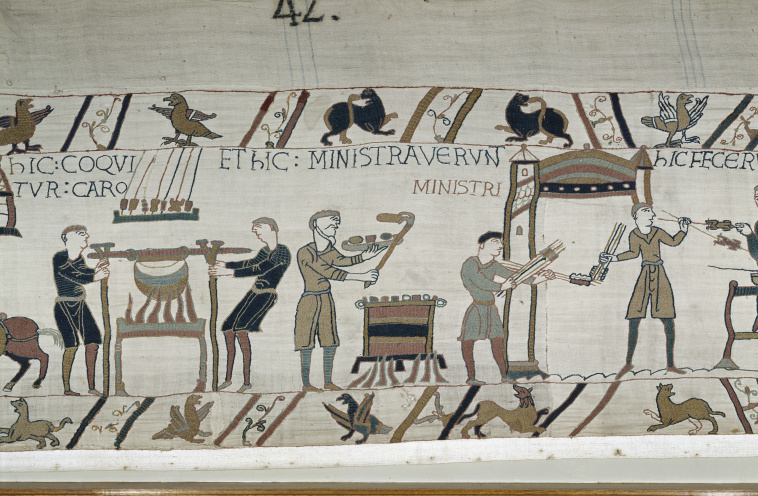 42.
hIC: COQVI
TVR: CARO
ET hIC: MINISTRAVERVN
MINISTRI
hIC FECER